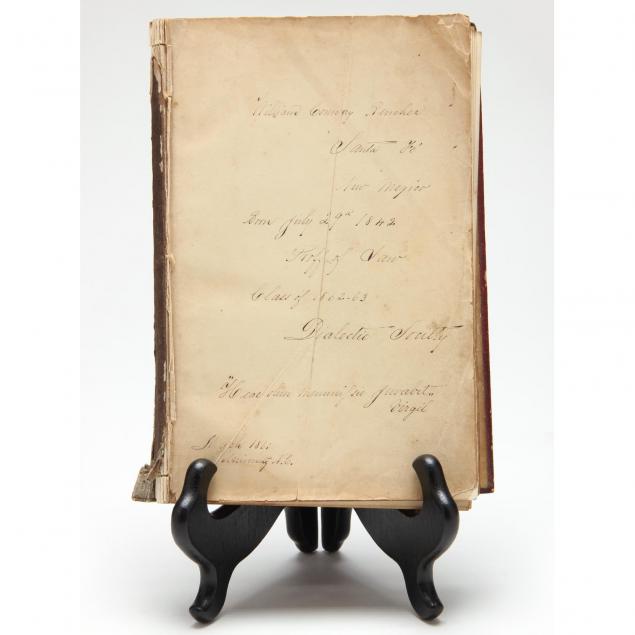 William Conway Rencher
Santa Fé
New Mexico
Born July 29th 1842
Proff of Law
Class of 1862-63
Dialectic Society
"Haec olim meminisse juvabit"
Virgil
1862
University N.C.